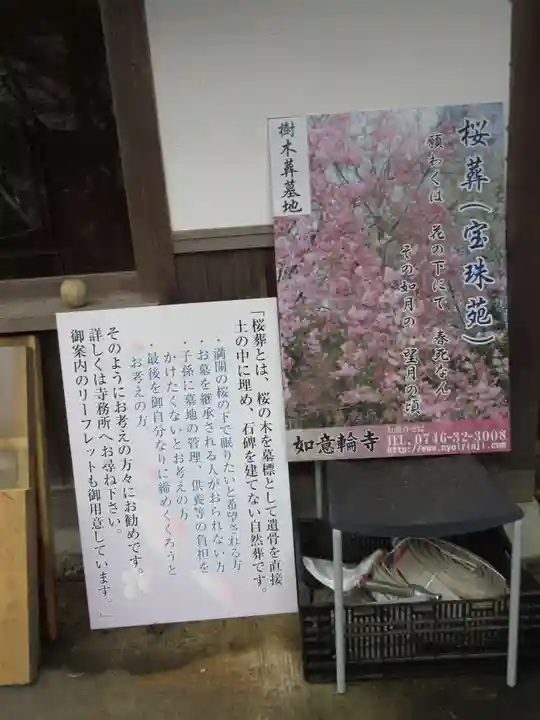 樹木葬墓地
桜葬(宝珠苑)
願わくは 花の下にて 春死なん
その如月の 望月の頃
如意輪寺
TEL.0746-32-3008
「桜葬とは、桜の木を墓標として遺骨を直接
土の中に埋め、石碑を建てない自然葬です。
・満開の桜の下で眠りたいと希望される方
・お墓を継承される人がおられない方
・子孫に墓地の管理、供養等の負担を
かけたくないとお考えの方
・最後を御自分なりに締めくくろうと
お考えの方
そのようにお考えの方々にお勧めです。
詳しくは寺務所へお尋ね下さい。
御案内のリーフレットも御用意しています。」